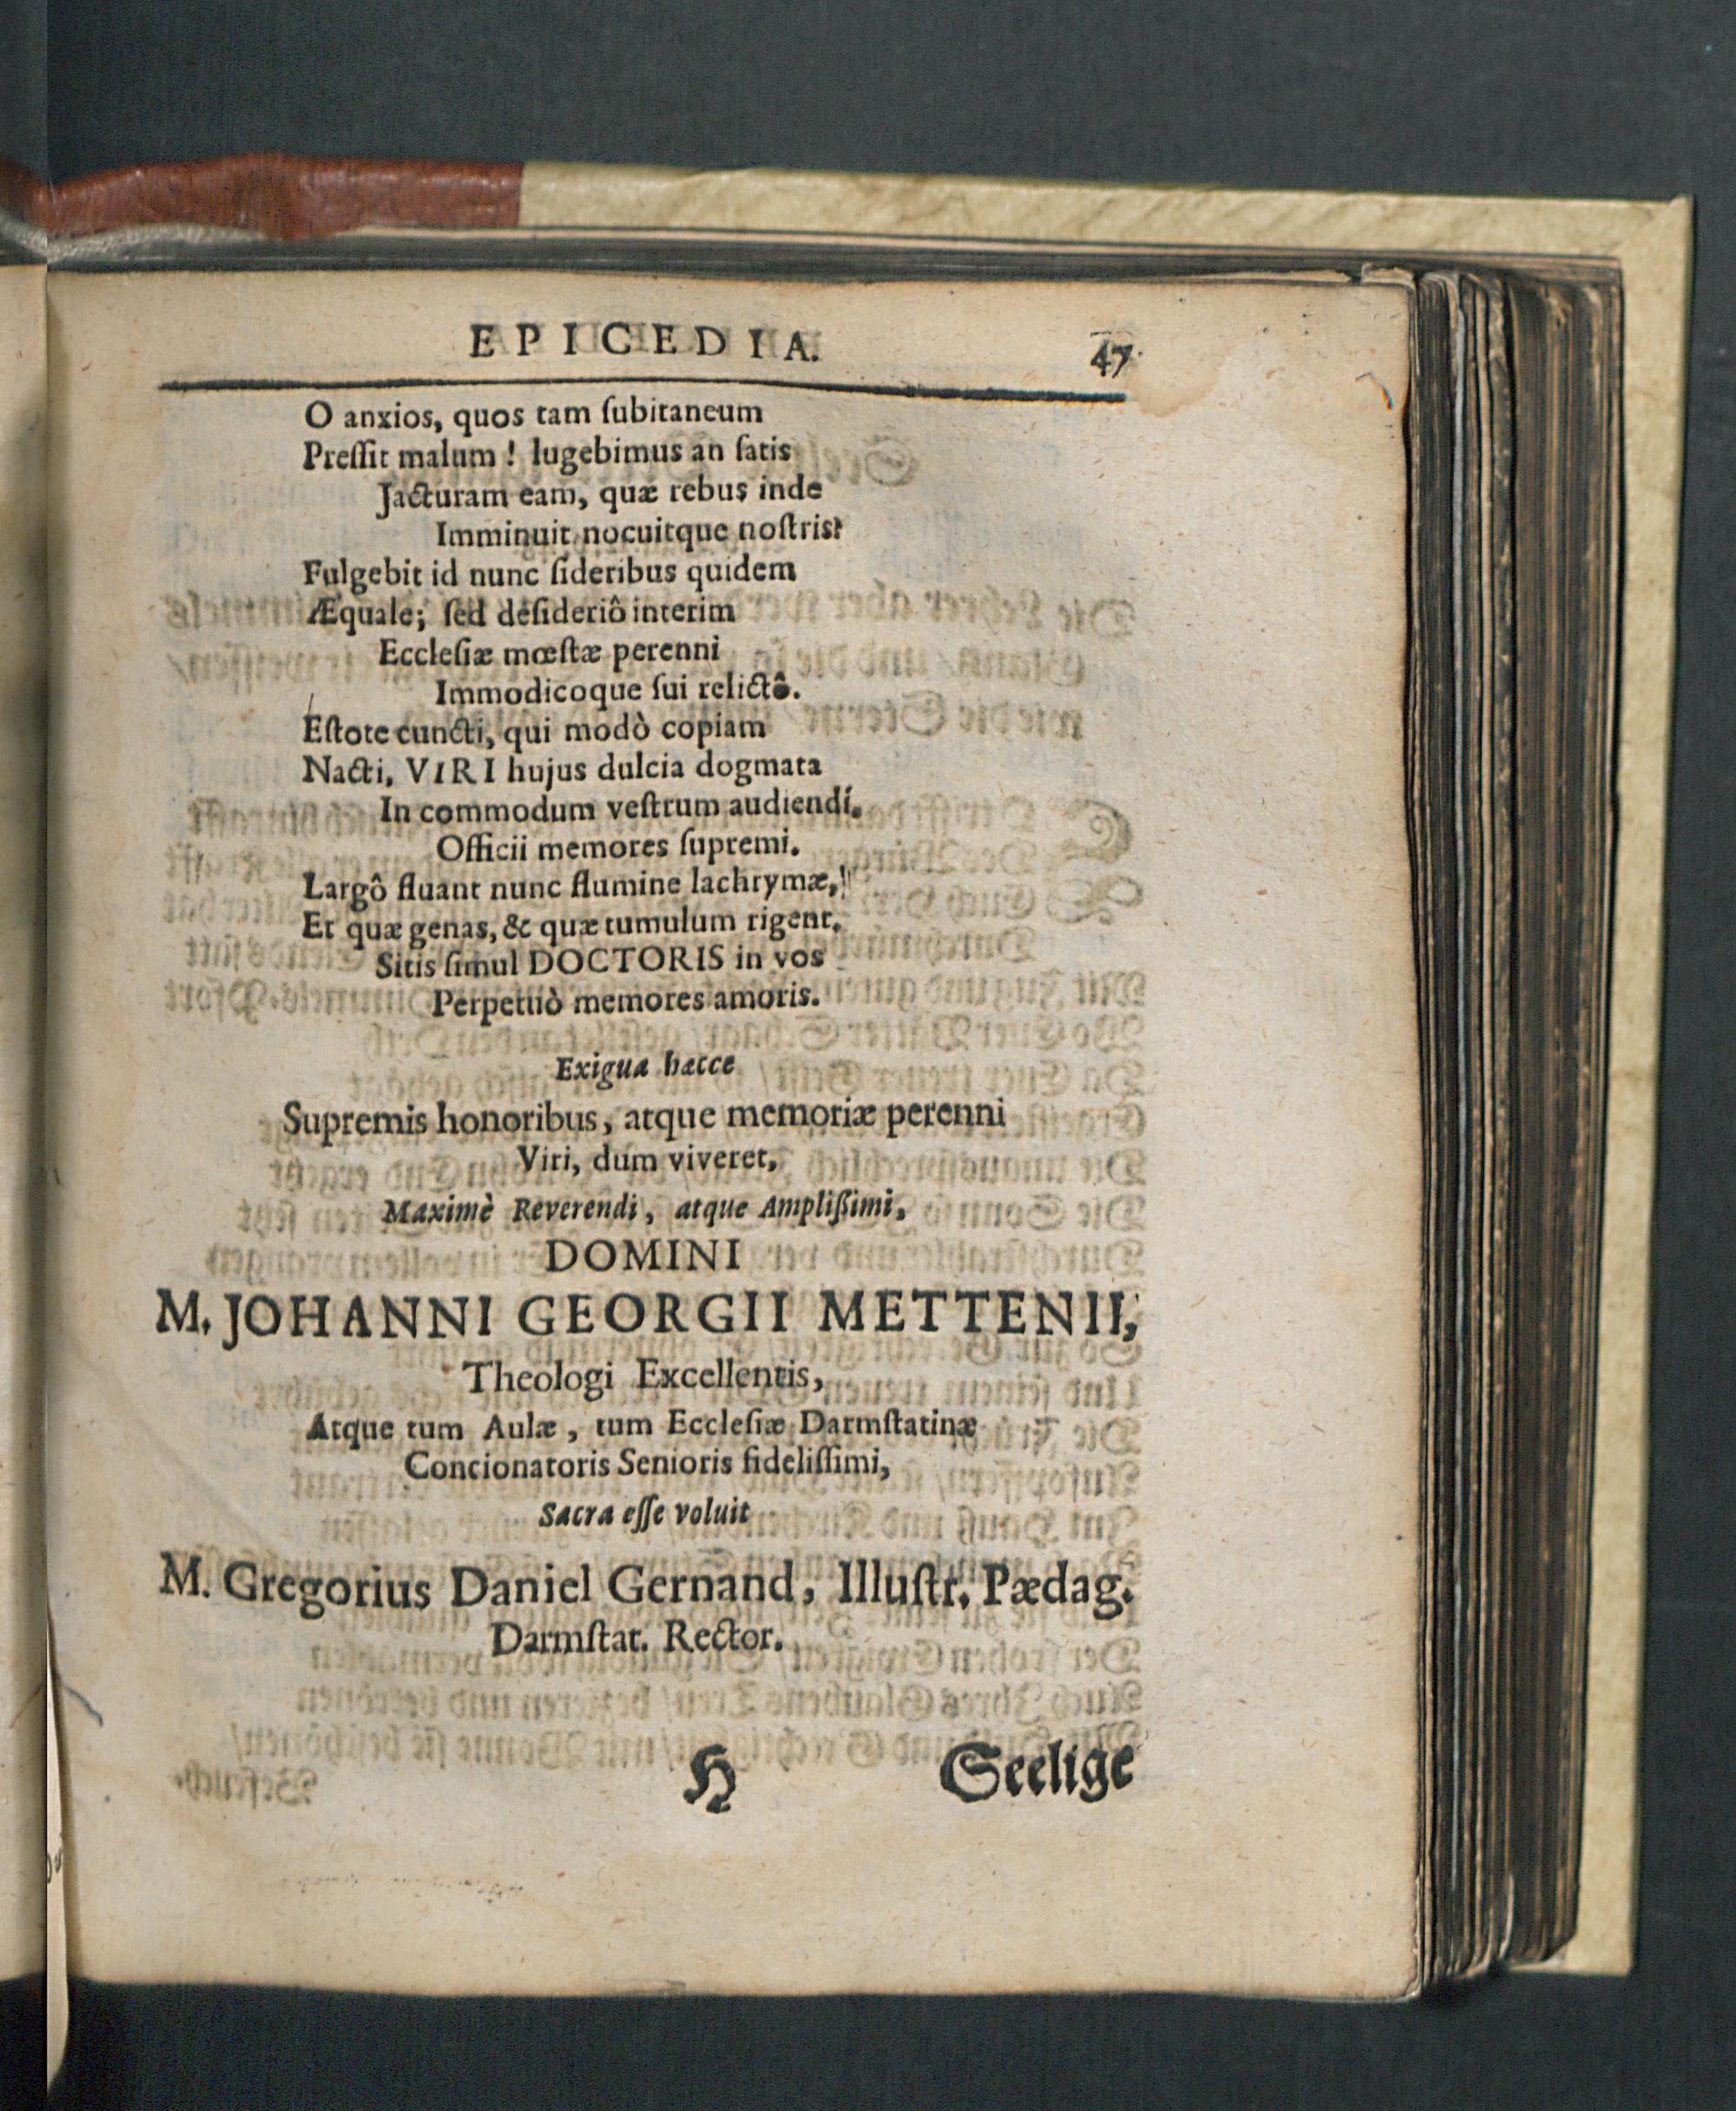 EPICEDIA. 47
O anxios, quos tam ſubitaneum
Preſſit malum! lugebimus an ſatis
Jacturam eam, quæ rebus inde
Imminuit nocuitque noſtris?
Fulgebit id nunc ſideribus quidem
Æquale; ſed deſideriô interim
Eccleſiæ mœſtæ perenni
Immodicoque ſui relictô.
Eſtote cuncti, qui modò copiam
Nacti, VIRI hujus dulcia dogmata
In commodum veſtrum audiendi,
Officii memores ſupremi.
Largô fluant nunc flumine lachrymæ,
Et quæ genas, & quæ tumulum rigent,
Sitis ſimul DOCTORIS in vos
Perpetuò memores amoris.
Exigua hæcce
Supremis honoribus, atque memoriæ perenni
Viri, dum viveret,
Maximè Reverendi, atque Ampliſſimi,
DOMINI
M. JOHANNI GEORGII METTENII,
Theologi Excellentis,
Atque tum Aulæ, tum Eccleſiæ Darmſtatinæ
Concionatoris Senioris fideliſſimi,
Sacra eſſe voluit
M. Gregorius Daniel Gernand, Illuſtr. Pædag.
Darmſtat. Rector.
H Seelige